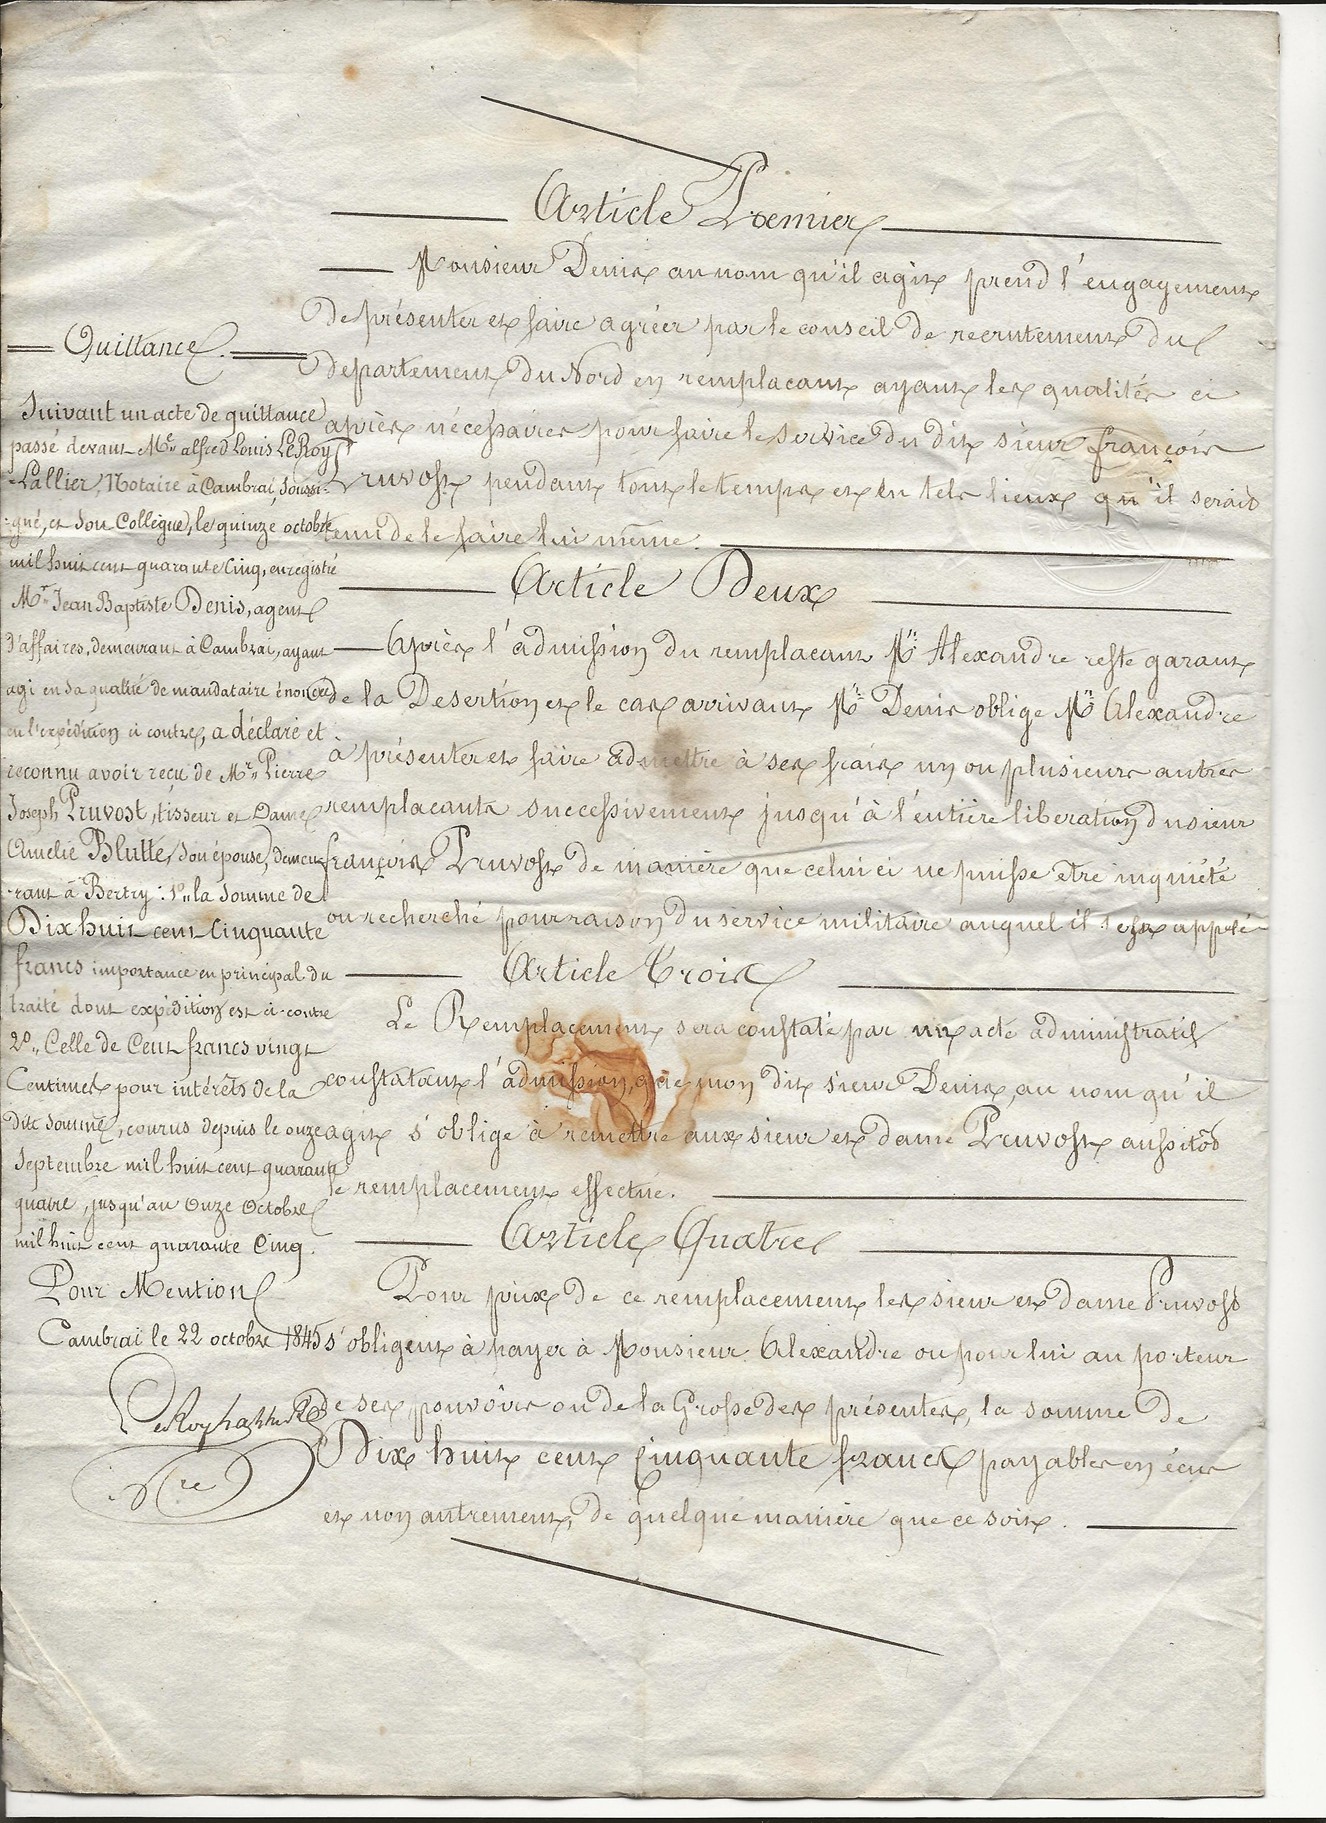 Article Premier
Monsieur Denis au nom qu'il agit prend l'engagement
De présenter et faire agréer par le conseil de recrutement du
departement du Nord en remplacant ayant les qualités ci
après nécessaires pour faire le service du dit sieur françois
Pruvost pendant tout le temps et en tels lieux qu'il serait
tenu de le faire lui même.
Article Deux
Après l'admission du remplacant Mr. Alexandre reste garant
de la Desertion et le cas arrivant Mr. Denis oblige Mr. Alexandre
à présenter et faire admettre à ses frais un ou plusieurs autres
remplacants successivement jusqu'à l'entière liberation du sieur
françois Pruvost de manière que celui ci ne puisse etre inquiété
ou recherché pour raison du service militaire auquel il est appelé
Article Trois
Le Remplacement sera constaté par un acte administratif
constatant l'admission, que mon dit sieur Denis, au nom qu'il
agit s'oblige à remettre aux sieur et dame Pruvost aussitôt
le remplacement effectué.
Article Quatre
Pour prix de ce remplacement les sieur et dame Pruvost
s'obligent à payer à Monsieur Alexandre ou pour lui au porteur
de ses pouvoirs ou de la Grosse des présentes, la somme de
Dix huit cent Cinquante francs payables en écus
et non autrement, de quelque manière que ce soit.
Quittance.
Suivant un acte de quittance
passé devant Me. alfred Louis LeRoy
Lallier, Notaire à Cambrai, soussi-
-gné, et son Collègue, le quinze octobre
mil huit cent quarante Cinq, enregistré
Mr. Jean Baptiste Denis, agent
d'affaires, demeurant à Cambrai, ayant
agi en sa qualité de mandataire énoncée
en l'expédition ci contre, a déclaré et
reconnu avoir reçu de Mr. Pierre
Joseph Pruvost, tisseur et Dame
Amelie Blutte, son épouse, demeu-
-rant à Bertry : 1° la Somme de
Dix huit cent Cinquante
francs importance en principal du
traité dont expédition est ci-contre
2° Celle de Cent francs vingt
Centimes pour intérêts de la
dite Somme, courus depuis le onze
Septembre mil huit cent quarante
quatre, jusqu'au Onze Octobre
mil huit cent quarante Cinq.
Pour Mention
Cambrai le 22 octobre 1845
Nre